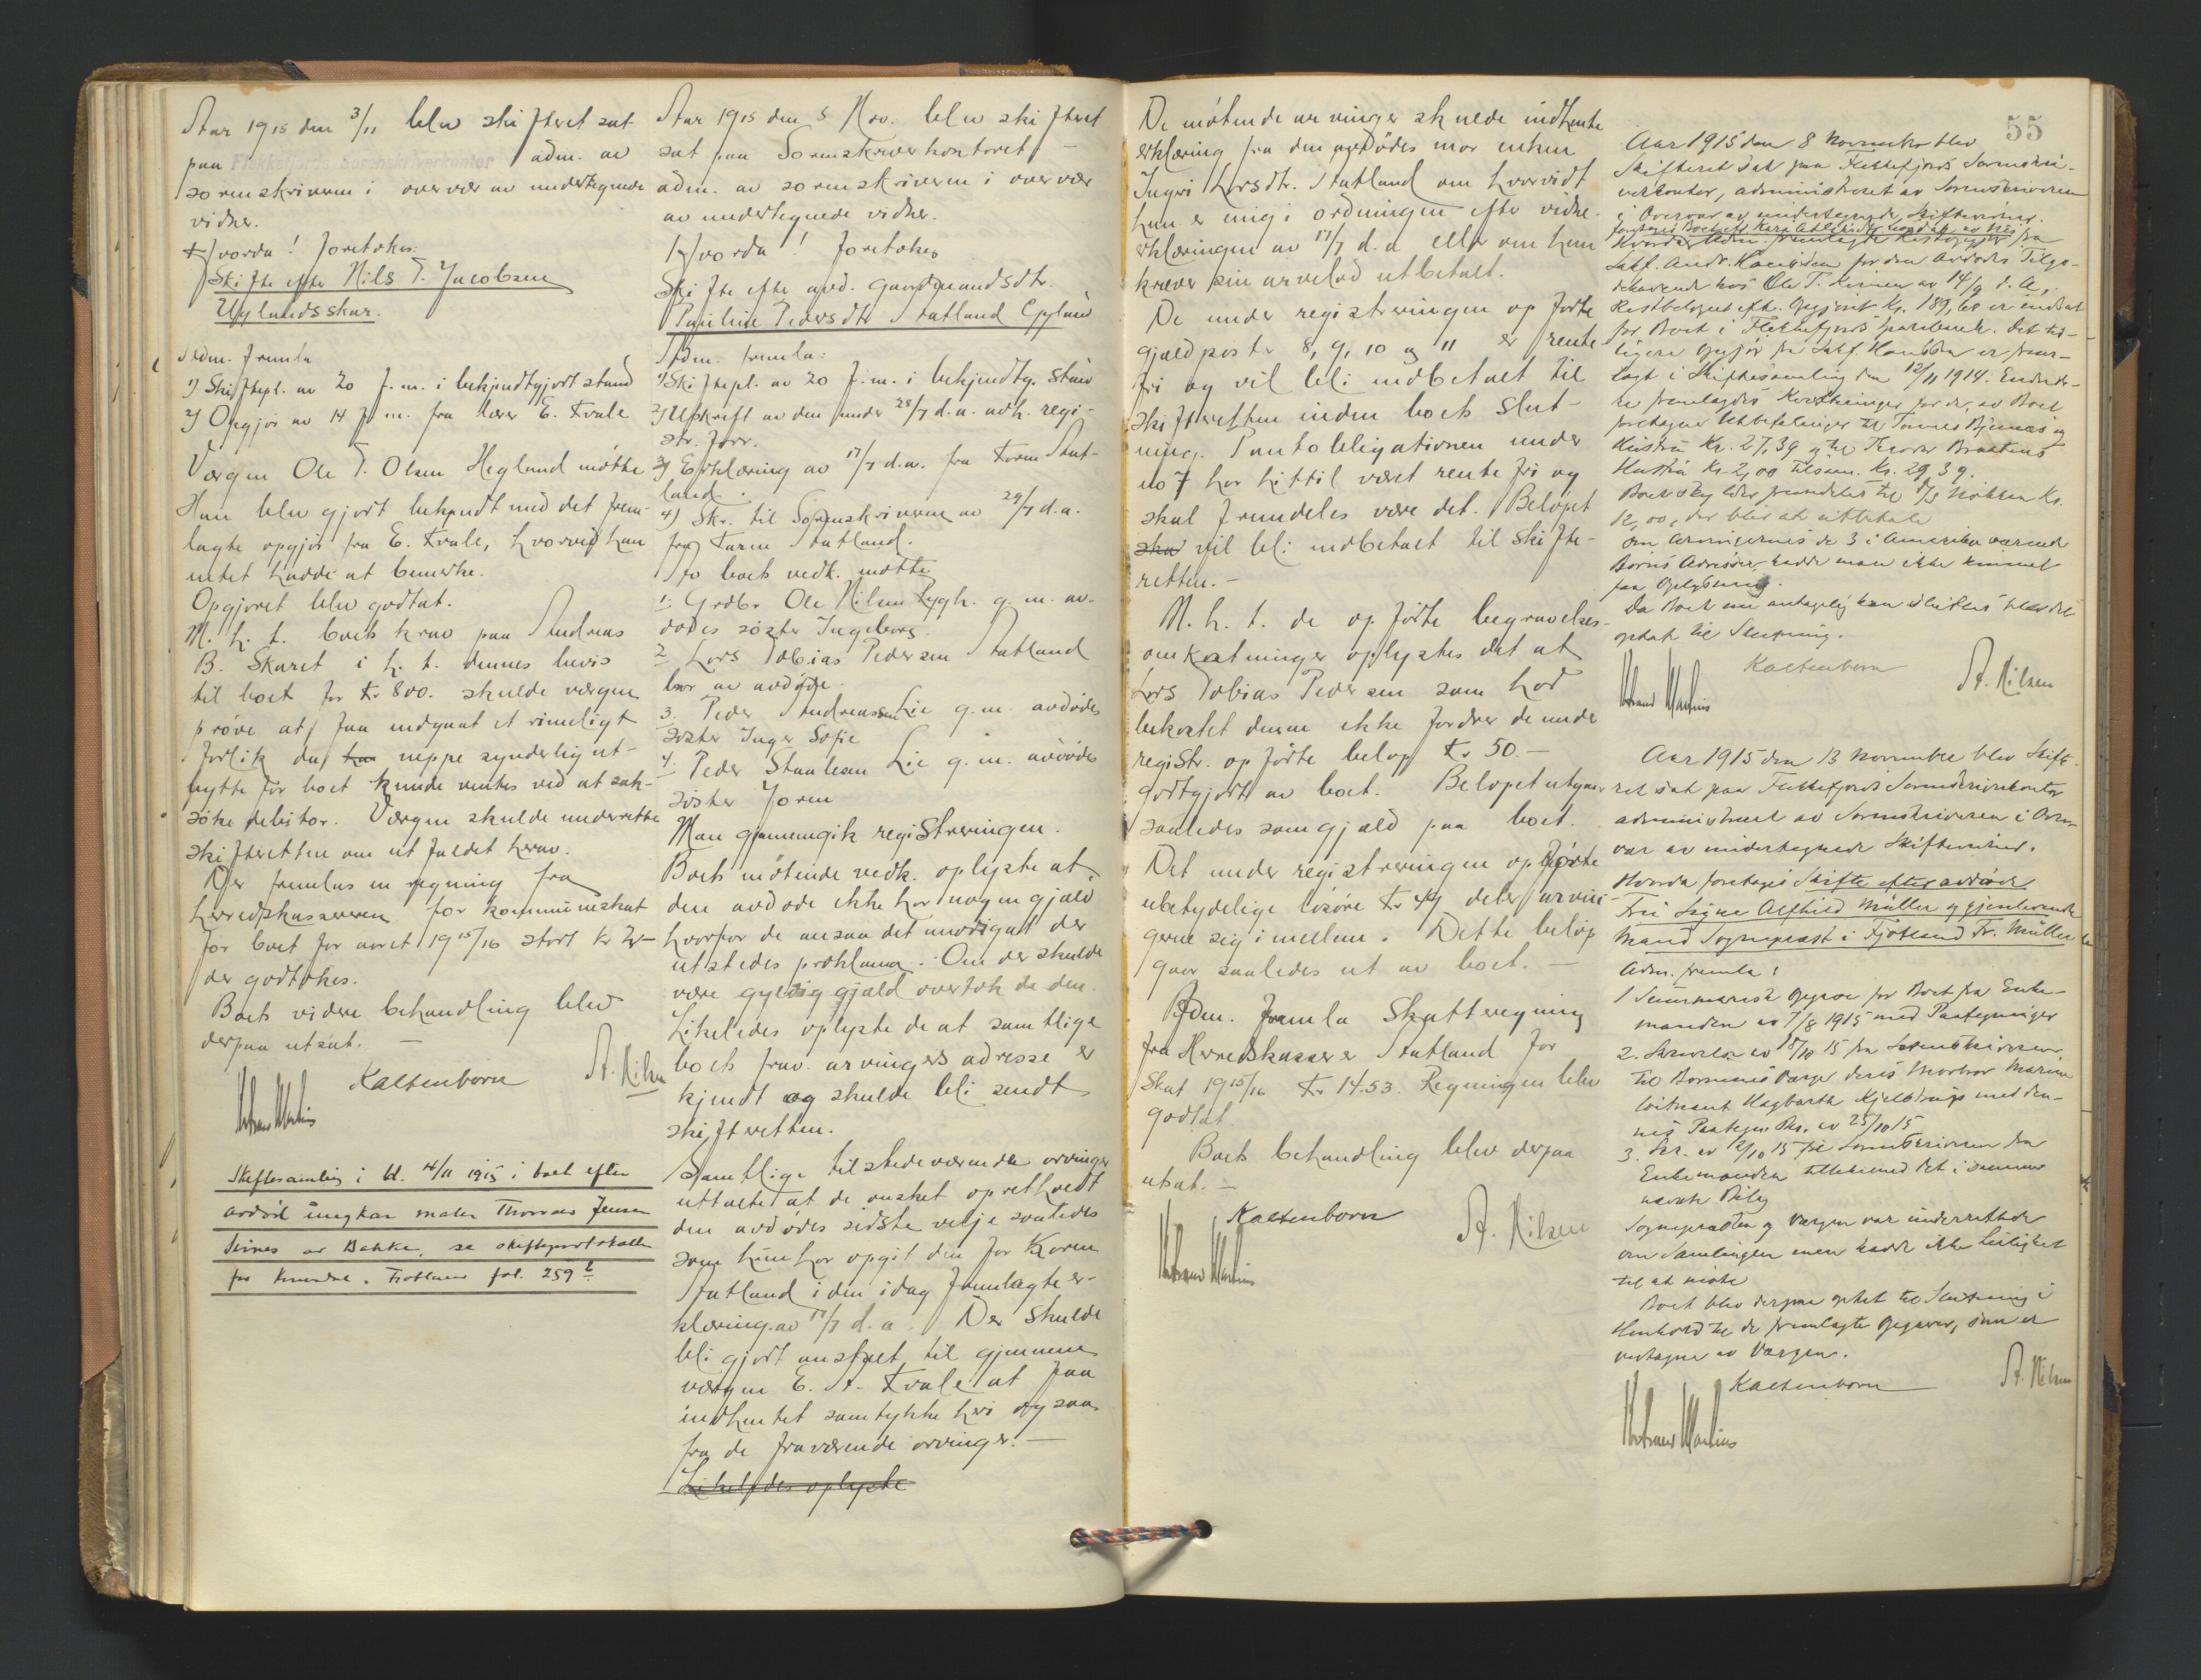 Aar 1915 den 3/11 blev skifteret sat
paa Flekkefjords Sorenskriverkontor adm. av
sorenskriveren i overvær av undertegnede
vidner.
Hvorda! foretokes:
Skifte efter Nils T. Jacobsen
Uglandsskar.
Adm. fremla
1) Skiftepl. av 20 f. m. i bekjendtgjort stand
2) Opgjør av 14 f. m. fra lærer E. Kvale
Værgen Ole T. Olsen Hegland møtte
Han blev gjort bekjendt med det frem-
lagte opgjør fra E. Kvale, hvorved han
intet hadde at bemerke.
Opgjøret blev godtat.
M. h. t. boets krav paa Andreas
B. Skaret i h. t. dennes bevis
til boet for kr 800. skulde værgen
prøve at faa indgaat et rimeligt
forlik da neppe synderlig ut-
bytte for boet kunde ventes ved at sak-
søke debitor. Værgen skulde underrette
skifteretten om utfaldet herav.
Der fremlas en regning fra
herredskassereren for kommuneskat
for boet for aaret 1915/16 stort kr
der godtokes.
Boets videre behandling blev
derpaa utsat. —
Kaltenborn A. Nilsen
Skiftesamling i bl. 4/11 1915 i boet efter
avdød ungkar maler Thomas Jensen
av Bakke, se skifteprotokollen
for fol. 259 b
Aar 1915 den 5 Nov. blev skifteret
sat paa Sorenskriverkontoret —
adm. av sorenskriveren i overvær
av undertegnede vidner.
Hvorda! foretokes
Skifte efter avd. gaardmandsdtr.
Pauline Pedersdtr Statland Gyland
Adm. fremla:
1) Skiftepl. av 20 f. m. i bekjendtg. stand
2) Utskrift av den under 28/7 d. a. avh. regi-
str. forr.
3) Erklæring av 17/7 d. a. fra Karen Stat-
land.
4) Skr. til Sorenskriveren av 29/7 d. a.
fra Karen Statland.
For boets vedk. møtte
1. Grdbr Ole Nilsen Rygh. g. m. av-
dødes søster Ingeborg.
2 Lars Tobias Pedersen Statland
bror av avdøde.
3. Peder Andreassen Lie g. m. avdødes
søster Inger Sofie
4. Peder Staalesen Lie g. m. avdødes
søster Joren
Man gjennemgik registreringen.
Boets møtende vedk. oplyste at
den avdøde ikke har nogen gjæld
hvorfor de ansaa det unødigat der
utstedes proklama. Om der skulde
være gyldig gjæld overtok de den.
Likeledes oplyste de at samtlige
boets frav. arvingers adresse er
kjendt og skulde bli sendt
skifteretten.
Samtlige tilstedeværende arvinger
uttalte at de ønsket opretholdt
den avdødes sidste vilje saaledes
som hun har opgit den for Karen
Statland i den idag fremlagte er-
klæring av 17/7 d. a. Der skulde
bli gjort anstalt til gjennem
værgen E. A. Kvale at faa
indhentet samtykke heri ogsaa
fra de fraværende arvinger. —
Likeledes oplyste
55
De møtende arvinger skulde indhente
erklæring fra den avdødes mor enken
Ingri Larsdtr. Statland om hvorvidt
hun er enig i ordningen efter vidne-
erklæringen av 17/7 d. a eller om hun
kræver sin arvelod utbetalt.
De under registreringen opførte
gjældposter 8, 9, 10 og 11 er rente-
fri og vil bli indbetalt til
skifteretten inden boets slut-
ning. Pantobligationen under
no 7 har hittil været rentefri og
skal fremdeles være det. Beløpet
skal vil bli indbetalt til skifte-
retten. —
M. h. t. de opførte begravelses-
omkostninger oplystes det at
Lars Tobias Pedersen som har
bekostet denne ikke fordrer de under
registr. opførte beløp kr 50.—
godtgjort av boet. Beløpet utgaar
saaledes som gjæld paa boet.
Det under registreringen opførte
ubetydelige løsøre kr deler arvin-
gerne sig imellem. Dette beløp
gaar saaledes ut av boet. —
Adm. fremla Skatteregning
fra Herredskasserer Statland for
Skat 1915/16 kr 14.53. Regningen blev
godtat.
Boets behandling blev derpaa
utsat. —
Kaltenborn A. Nilsen
Aar 1915 den 8 November blev
Skifteret sat paa Flekkefjords Sorenskri-
verkontor, administreret av Sorenskriveren
i Overvær av undertegnede Skiftevidner.
Hvorda Adm. fremlagde fra
Sakf. Andr. Hanssen for den Avdødes Tilgo-
dehavende hos Ole T. av 14/9 d. A.,
Restbeløpet efter Opgjøret Kr. 189,60 er indsat
for Boet i Flekkefjords Sparebank. Det tid-
ligere Opgjør fra Sakf. Hanssen er frem-
lagt i Skiftesamling den 12/11 1914. Endvide-
re fremlagdes Kvitteringer for de, av Boet
foretagne Utbetalinger til Tønnes Bjernæs og
Hustru Kr. 27,39 og til Theodor
Hustru Kr. 2,00 tilsam. Kr. 29,39.
Boet skylder fremdeles til Kr.
12,00, der blir at utbetale
Om Arvingernes de 3 i Amerika værende
Børns Adresser, hadde man ikke kunnet
faa Oplysning.
Da Boet nu antagelig kan sluttes blev det
optat til Slutning.
Kaltenborn A. Nilsen
Aar 1915 den 13 November blev Skifte-
ret sat paa Flekkefjords Sorenskriverkontor
administreret av Sorenskriveren i Over-
vær av undertegnede Skiftevidner.
Hvorda foretages Skifte efter avdøde
Fru Signe Alfhild Müller og gjenlevende
Mand Sogneprest i Fjotland Fr. Müller
Adm. fremla:
1 Summarisk Opgave for Boet fra Enke-
manden av 7/8 1915 med Paategninger
2. Skrivelse av 18/10 15 fra Sorenskriveren
til Børnenes Værge deres Morbror Marine
løitnant Hagbarth Kjelstrup med den-
nes Paategn. av 25/10 15
3. Skr. av 12/10 15 fra
Enkemanden tillikemed det i samme
nævnte Bilag
Sognepresten og Værgen var underrettede
om Samlingen men hadde ikke Leilighet
til at møte
Boet blev derpaa optat til Slutning i
Henhold til de fremlagte Opgaver, som er
vedtagne av Værgen.
Kaltenborn A. Nilsen